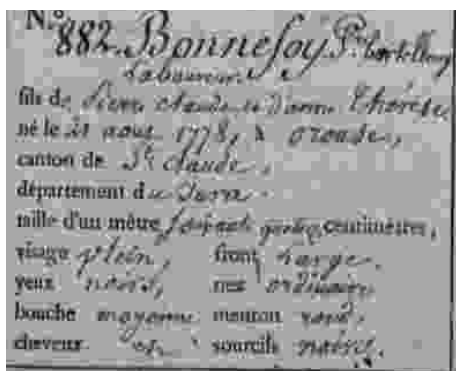 N.º 882. Bonnefoy Pre. bartellemy
Laboureur.
fils de Pierre claude et d'anne Thérèse
né le 21 aout 1778, à
canton de St. Claude,
département du Jura.
taille d'un mètre soixante centimètres,
visage plein, front large.
yeux noirs, nez ordinaire
bouche moyenne menton rond,
cheveux et sourcils noirs.